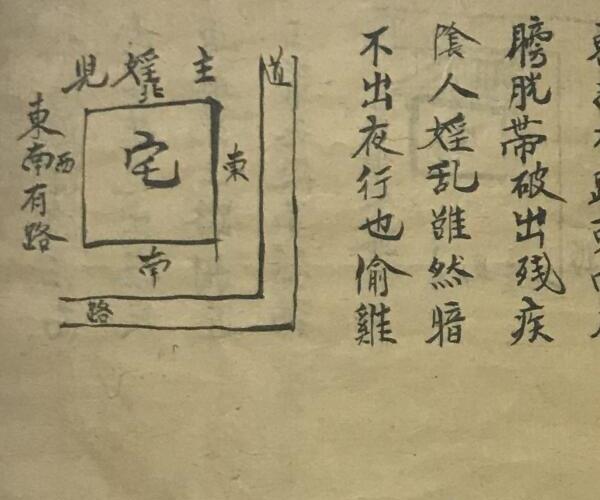 膀胱帶破出殘疾
陰人婬乱雖然暗
不出夜行也偷雞
道
主婬
北
東
宅
西
南
路
東南有路